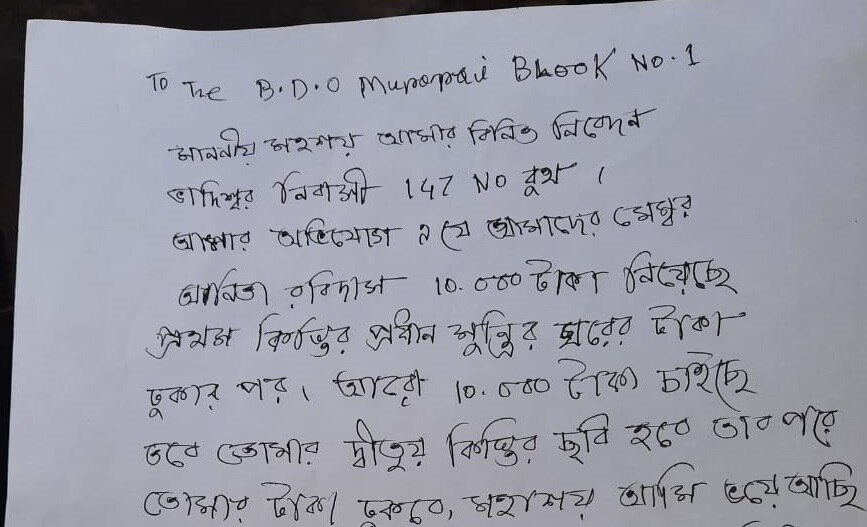 To The B.D.O Muraroi Block No.1
মাননীয় মহশয় আমার বিনিত নিবেদন
ভাদিশ্বর নিবাসী 147 NO বুথ ।
আমার অভিযোগ এ যে আমাদের মেম্বর
অনিতা রবিদাস 10.000 টাকা নিয়েছে
প্রথম কিস্তির প্রধান মন্ত্রির ঘরের টাকা
ঢুকার পর। আরো 10.000 টাকা চাইছে
তবে তোমার দ্বীতৃয় কিস্তির ছবি হবে তার পরে
তোমার টাকা ঢুকবে, মহাশয় আমি ভয়ে আছি